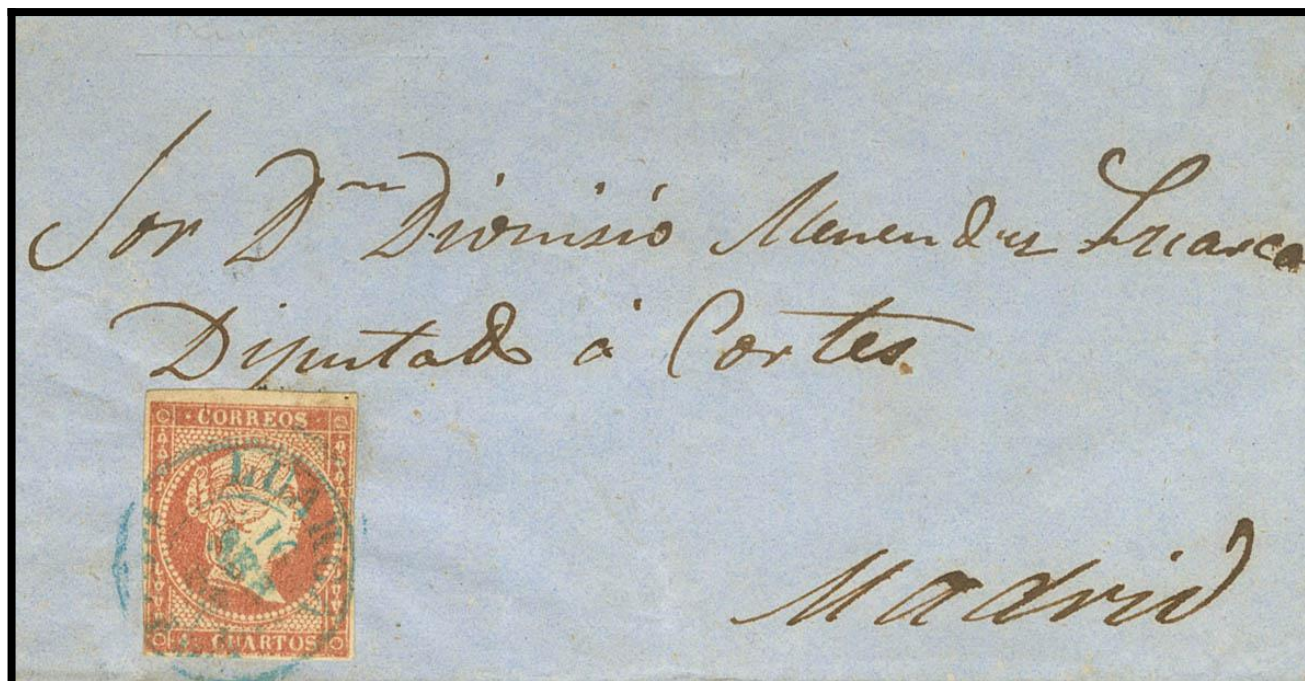 Sor Dn Dionisio Menendez Luarca
Diputado á Cortes
CORREOS
LUARCA
CUARTOS
Madrid